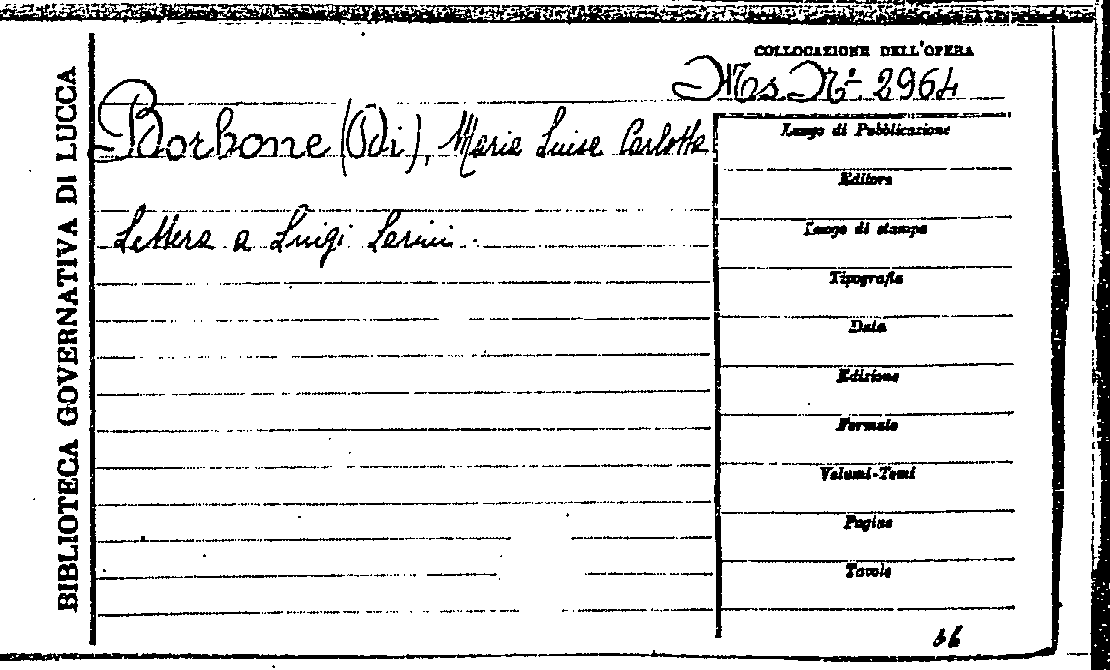 BIBLIOTECA GOVERNATIVA DI LUCCA
COLLOCAZIONE DELL'OPERA
Ms. Nº 2964
Borbone (Di), Maria Luisa Carlotta
Lettera a Luigi
Luogo di Pubblicazione
Editore
Luogo di stampa
Tipografia
Data
Edizione
Formato
Volumi-Tomi
Pagine
Tavole